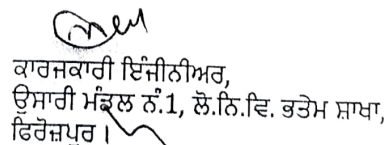 ਕਾਰਜਕਾਰੀ ਇੰਜੀਨੀਅਰ,
ਉਸਾਰੀ ਮੰਡਲ ਨੰ.1, ਲੋ.ਨਿ.ਵਿ. ਭਤੇਮ ਸ਼ਾਖਾ,
ਫਿਰੋਜ਼ਪੁਰ।